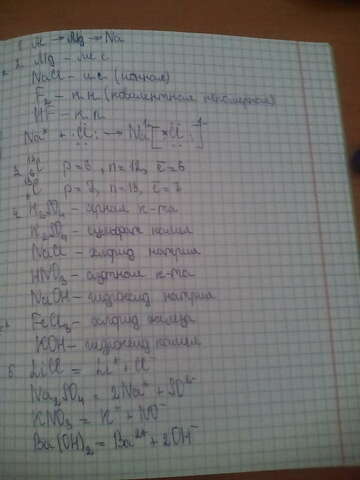 1. Al → Mg → Na
2. Mg - м.с
NaCl - и.с (ионная)
F₂ - к.н (ковалентная неполярная)
HF - к.п
Na˟ + ·Cl: → Na⁺[ ˟Cl: ]⁻
3. C p=6, n=12, e=6
C p=7, n=13, e=7
4. H₂SO₄ - серная к-та
K₂SO₄ - сульфат калия
NaCl - хлорид натрия
HNO₃ - азотная к-та
NaOH - гидроксид натрия
FeCl₃ - хлорид железа
KOH - гидроксид калия
5. LiCl = Li⁺ + Cl⁻
Na₂SO₄ = 2Na⁺ + SO²⁻
KNO₃ = K⁺ + NO⁻
Ba(OH)₂ = Ba²⁺ + 2OH⁻